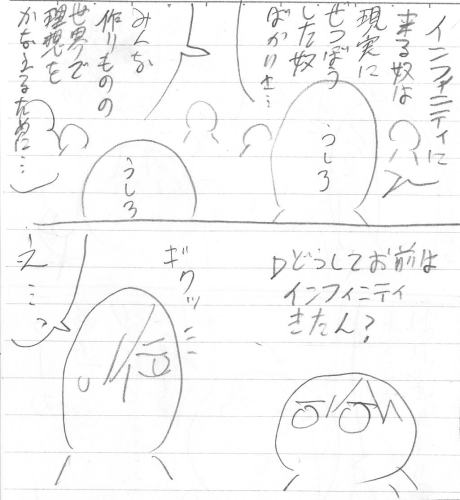 インフィニティに
来る奴は
現実に
ぜつぼう
した奴
ばかりさ…
みんな
作りものの
世界で
理想を
かなえるために…
うしろ
うしろ
どうしてお前は
インフィニティ
きたん?
ギクッ
え…